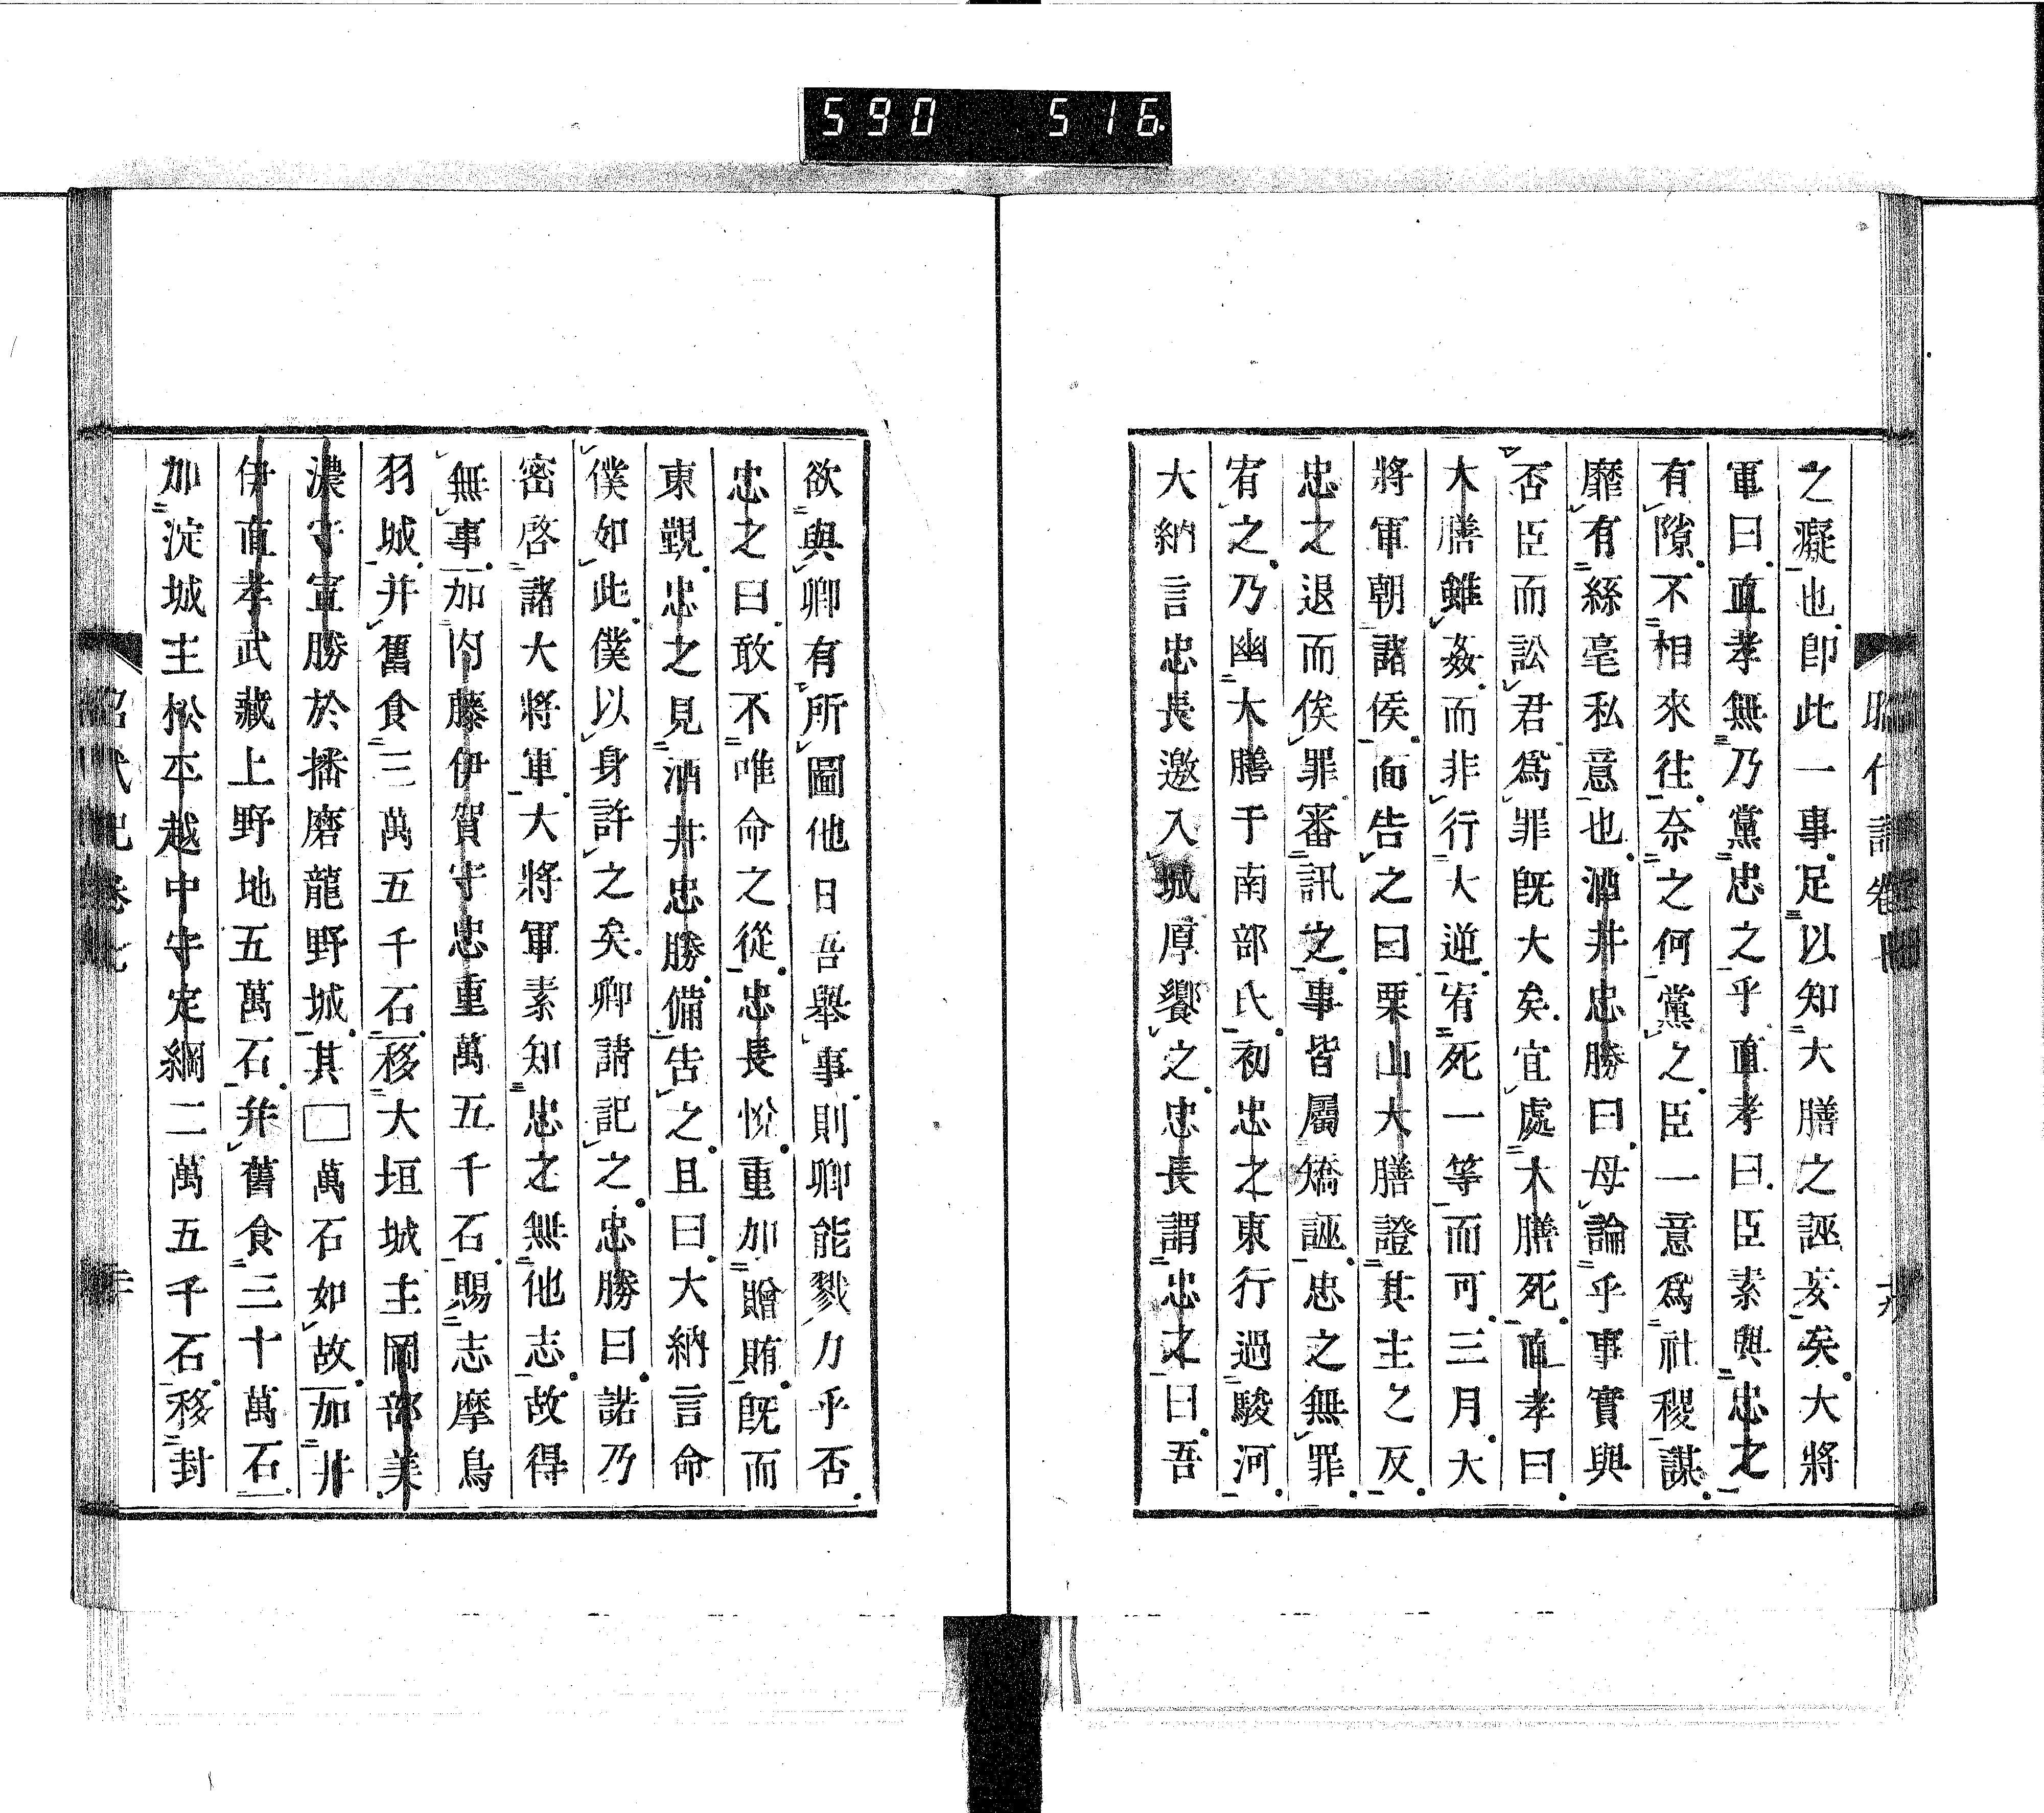 590 516
之癡也卽此一事足以知大膳之誣妄矣大將
軍曰直孝無乃黨忠之乎直孝曰臣素與忠之
有隙不相來往奈之何黨之臣一意爲社稷謀
靡有絲毫私意也酒井忠勝曰母論乎事實與
否臣而訟君爲罪旣大矣宜處大膳死直孝曰
大膳雖姦而非行大逆宥死一等而可三月大
將軍朝諸侯面告之曰栗山大膳證其主之反
忠之退而俟罪審訊之事皆屬矯誣忠之無罪
宥之乃幽大膳于南部氏初忠之東行過駿河
大納言忠長邀入城厚饗之忠長謂忠之曰吾
欲與卿有所圖他日吾擧事則卿能戮力乎否
忠之曰敢不唯命之從忠長悅重加贈賄旣而
東覲忠之見酒井忠勝備告之且曰大納言命
僕如此僕以身許之矣卿請記之忠勝曰諾乃
密啓諸大將軍大將軍素知忠之無他志故得
無事加內藤伊賀守忠重萬五千石賜志摩鳥
羽城并舊食三萬五千石移大垣城主岡部美
濃守宣勝於播磨龍野城其□萬石如故加井
伊直孝武藏上野地五萬石幷舊食三十萬石
加淀城主松平越中守定綱二萬五千石移封